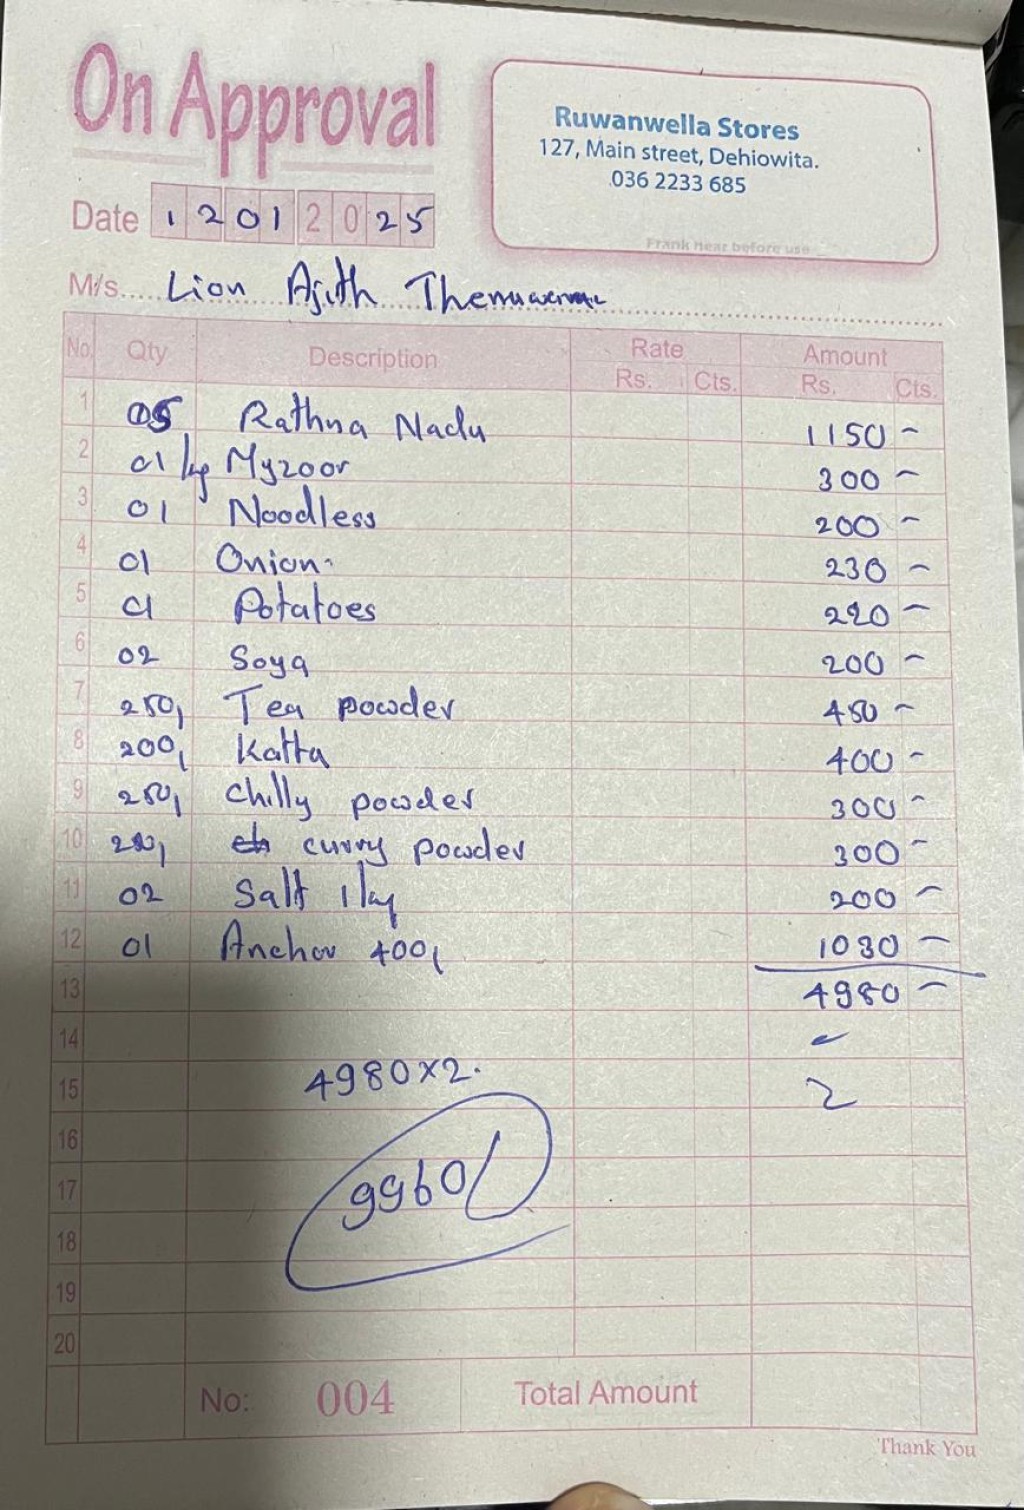 On Approval
Ruwanwella Stores
127, Main street, Dehiowita.
036 2233 685
Frank Hear before use
Date 12012025
M/s.... Lion Ajith
No. Qty Description Rate Amount
Rs. Cts. Rs. Cts.
1 05 Rathna Nadu 1150 -
2 01 kg Myzoor 300 -
3 01 Noodless 200 -
4 01 Onion 230 -
5 01 Potatoes 220 -
6 02 Soya 200 -
7 250, Tea powder 450 -
8 200, Katta 400 -
9 250, chilly powder 300 -
10 curry powder 300 -
11 02 Salt 1 kg 200 -
12 01 Anchor 400, 1030 -
13 4980 -
14
15 4980x2. 2
16
17 9960/
18
19
20
No: 004 Total Amount
Thank You